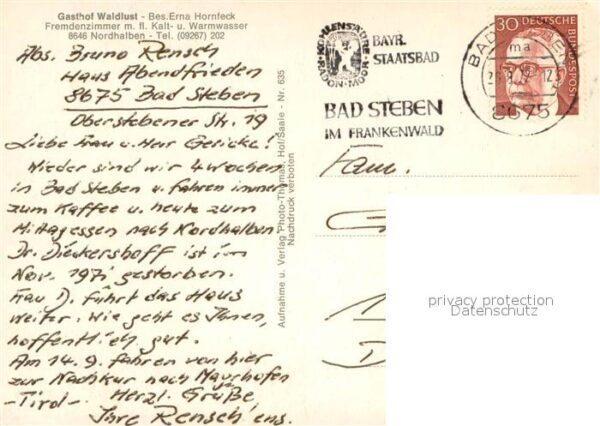 Gasthof Waldlust - Bes. Erna Hornfeck
Fremdenzimmer m. fl. Kalt- u. Warmwasser
8646 Nordhalben - Tel. (09267) 202
Abs. Bruno Rensch
Haus Abendfrieden
8675 Bad Steben
Oberstebener Str. 19
Liebe Frau u. Herr Gericke!
Wieder sind wir 4 Wochen
in Bad Steben u. fahren immer
zum Kaffee u. heute zum
Mittagessen nach Nordhalben.
Dr. Dieckershoff ist im
Nov. 1971 gestorben.
Frau D. führt das Haus
weiter. Wie geht es Ihnen,
hoffentlich gut.
Am 14. 9. fahren von hier
zur Nachkur nach Mayrhofen
-Tirol- Herzl. Grüße,
Ihre Rensch'ens.
Aufnahme u. Verlag Photo-Thomas, Hof/Saale - Nr. 635
Nachdruck verboten
KOHLENSÄURE
RADON MOOR
BAYR.
STAATSBAD
BAD STEBEN
IM FRANKENWALD
30 DEUTSCHE
BUNDESPOST
BAD
ma
8675
Fam.
privacy protection
Datenschutz